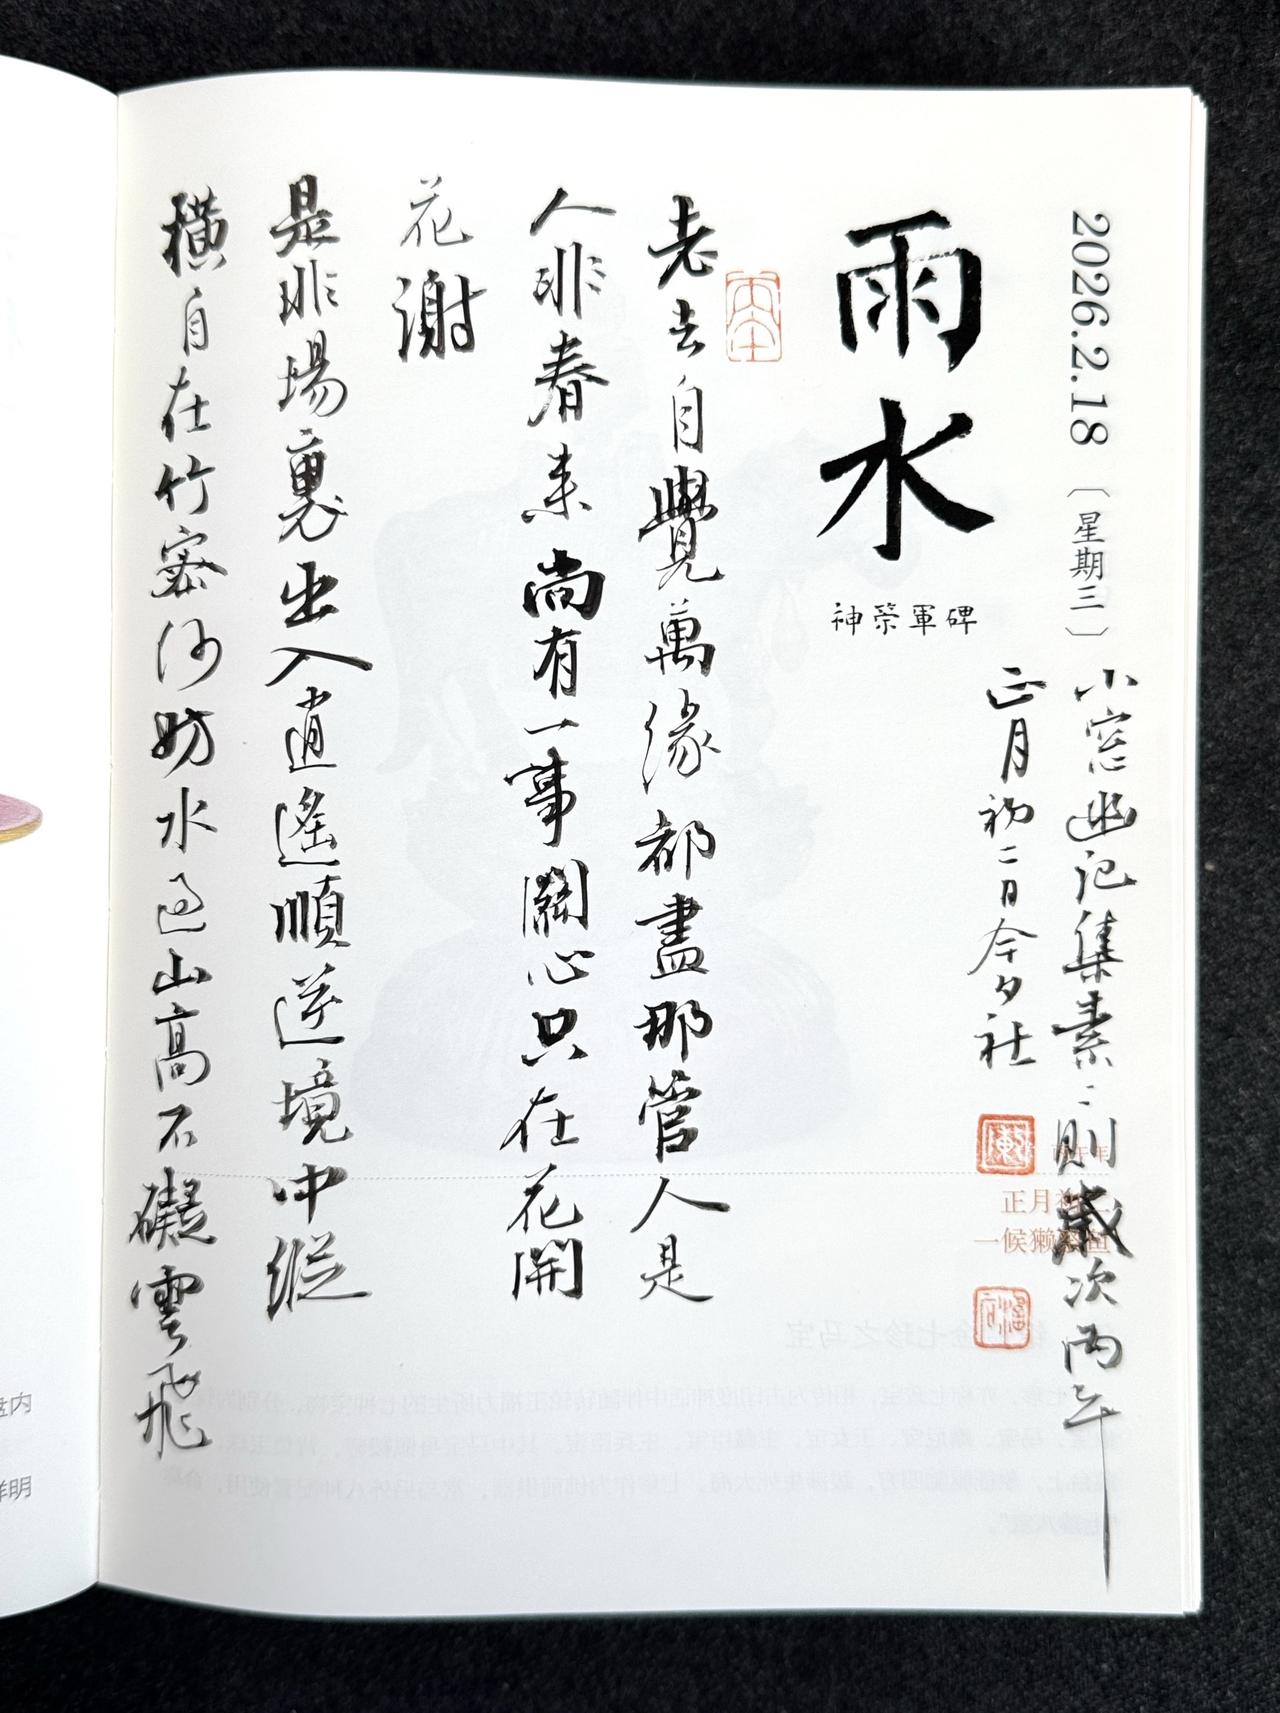 2026.2.18〔星期三〕
小窓幽记集素二則歲次丙午
正月初二日今夕社
雨水
神策軍碑
老去自覺萬緣都盡那管人是
人非春来尚有一事關心只在花開
花謝
是非場裏出入逍遙順逆境中縱
橫自在竹密何妨水過山高不礙雲飛
正月初二
一候獭祭鱼